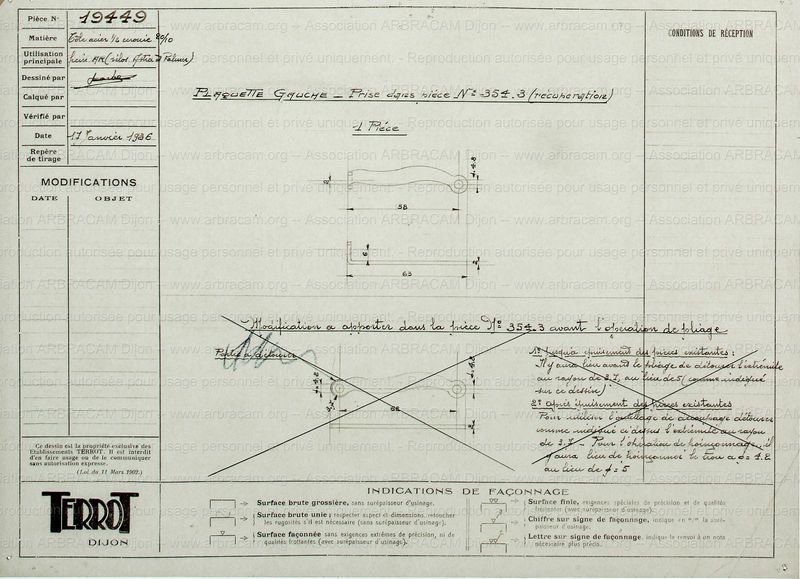 Pièce N° 19449
Matière Tôle acier 1/2 20/10
Utilisation principale
Dessiné par
Calqué par
Vérifié par
Date 17 Janvier 1936
Repère de tirage
MODIFICATIONS
DATE OBJET
CONDITIONS DE RÉCEPTION
PLAQUETTE GAUCHE _ Prise dans pièce N° 354.3 (récupération)
1 Pièce
4.8
58
6
2
63
Modification a apporter dans la pièce N° 354.3 avant l'opération de pliage
Partie à détourer
4.8
58
2
1° Jusqu'à épuisement des pièces existantes :
Il y aura lieu avant le pliage de détourer l'extrémité
au rayon de 3.7, au lieu de 5 (comme indiqué
sur ce dessin)
2° après épuisement des pièces existantes
Pour utiliser l'outillage de découpage détourer
comme indiqué ci dessus l'extrémité au rayon
de 3.7 _ Pour l'opération de poinçonnage, il
y aura lieu de poinçonner le trou a ø = 4.8
au lieu de ø = 5
Ce dessin est la propriété exclusive des
Etablissements TERROT. Il est interdit
d'en faire usage ou de le communiquer
sans autorisation expresse.
(Loi du 11 Mars 1902.)
TERROT
DIJON
INDICATIONS DE FAÇONNAGE
Surface brute grossière, sans surépaisseur d'usinage.
Surface brute unie ; respecter aspect et dimensions, retoucher
les rugosités s'il est nécessaire (sans surépaisseur d'usinage).
Surface façonnée sans exigences extrêmes de précision, ni de
qualités frottantes (avec surépaisseur d'usinage).
Surface finie, exigences spéciales de précision et de qualités
frottantes (avec surépaisseur d'usinage).
Chiffre sur signe de façonnage, indique en m/m la surépaisseur d'usinage.
Lettre sur signe de façonnage, indique le renvoi à un nota
nécessaire plus précis.
www.arbracam.org -- Association ARBRACAM Dijon
Reproduction autorisée pour usage personnel et privé uniquement.